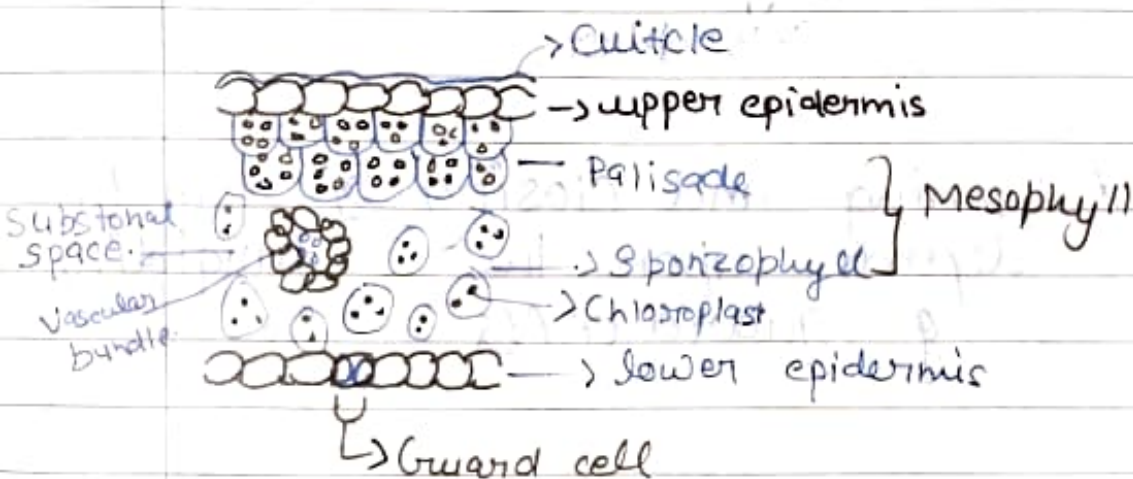 Cuitcle
upper epidermis
Palisade
Mesophyll
Substonal
space.
Sponzophyll
Chloroplast
Vascular
bundle.
lower epidermis
Guard cell